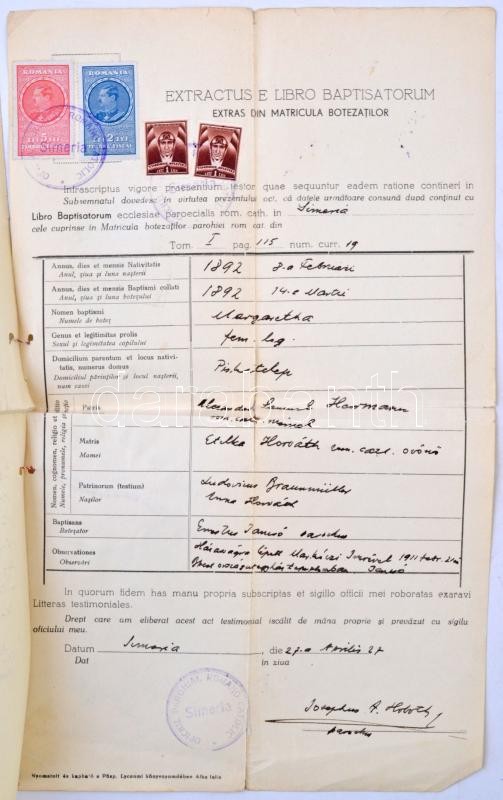 ROMANIA ROMANIA
5 LEI 2 LEI
TIMBRU FISCAL TIMBRU FISCAL
OFICIUL PAROHIAL ROMANO CATOLIC
Simeria
EXTRACTUS E LIBRO BAPTISATORUM
EXTRAS DIN MATRICULA BOTEZAȚILOR
Infrascriptus vigore praesentium testor quae sequuntur eadem ratione contineri in
Subsemnatul dovedesc în virtutea prezentului act, că datele următoare consună după conținut cu
Libro Baptisatorum ecclesiae paroecialis rom. cath. in Simeria
cele cuprinse in Matricula botezaților parohiei rom cat. din
Tom. I pag. 115 num. curr. 19
Annus, dies et mensis Nativitatis 1892 3-a Februari
Anul, ziua și luna nașterii
Annus, dies et mensis Baptismi collati 1892 14-a Martii
Anul, ziua și luna botezului
Nomen baptismi Margaretha
Numele de botez
Genus et legitimitas prolis fem. leg.
Sexul și legimitatea copilului
Domicilium parentum et locus nativi-
tatis, numerus domus Piski-telep
Domiciliul părinților și locul nașterii,
num casei
Nomen, cognomen, religio et conditio
Numele, pronumele, religia și
Patris Alexander Hermann
Matris Etelka Horváth rom. cath. óvónő
Mamei
Patrinorum (testium) Ludovicus Braunmüller
Nașilor Anna Horváth
Baptisans parochus
Botezător
Observationes 1911
Observări
In quorum fidem has manu propria subscriptas et sigillo officii mei roboratas exaravi
Litteras testimoniales.
Drept care am eliberat acest act testimonial iscălit de mâna proprie și prevăzut cu sigilu
oficiului meu.
Datum Simeria, die 27-a Aprilis 37
Dat in ziua
OFICIUL PAROHIAL ROMANO CATOLIC
Simeria
Josephus
parochus
Nyomatott és kapható a Püsp. Lyceumi könyvnyomdában Alba Iulia
darabanth